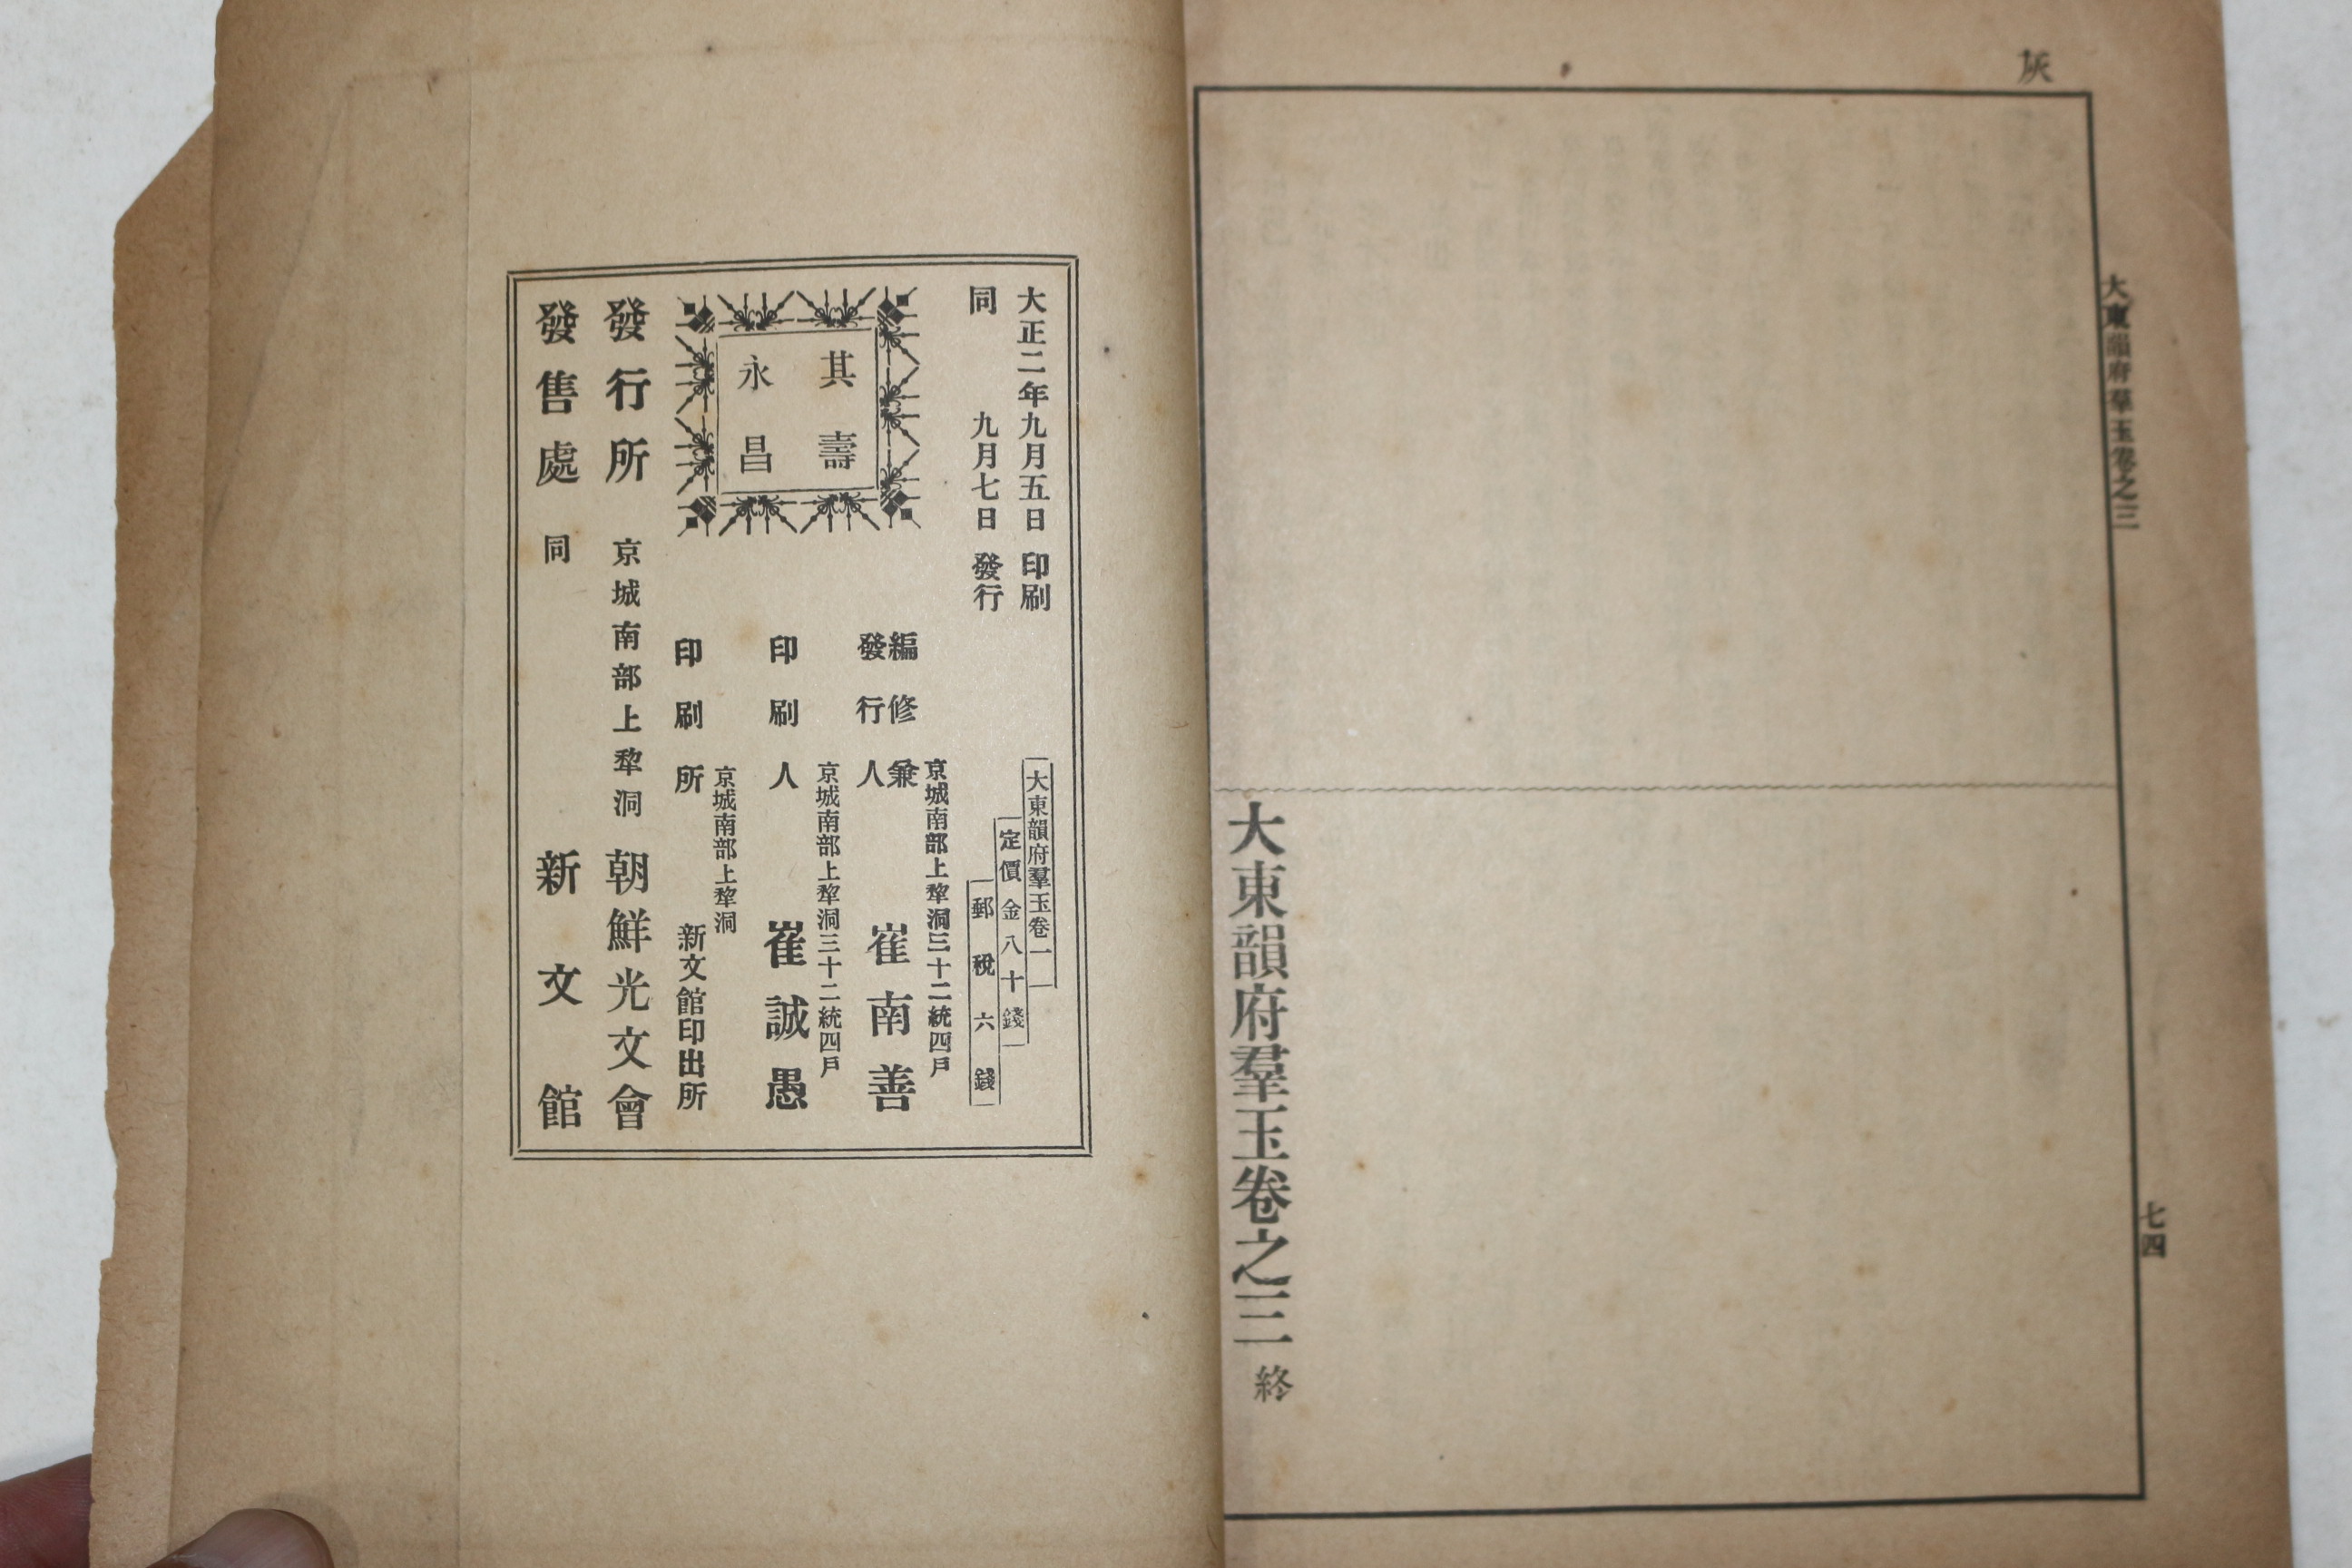 灰
大東韻府羣玉卷之三
七四
大東韻府羣玉卷之三 終
大正二年九月五日 印刷
同 九月七日 發行
大東韻府羣玉卷一
定價金八十錢
郵稅六錢
其壽
永昌
京城南部上犂洞三十二統四戶
編修兼
發行人 崔南善
京城南部上犂洞三十二統四戶
印刷人 崔誠愚
京城南部上犂洞
印刷所 新文館印出所
發行所 京城南部上犂洞 朝鮮光文會
發售處 同 新文館